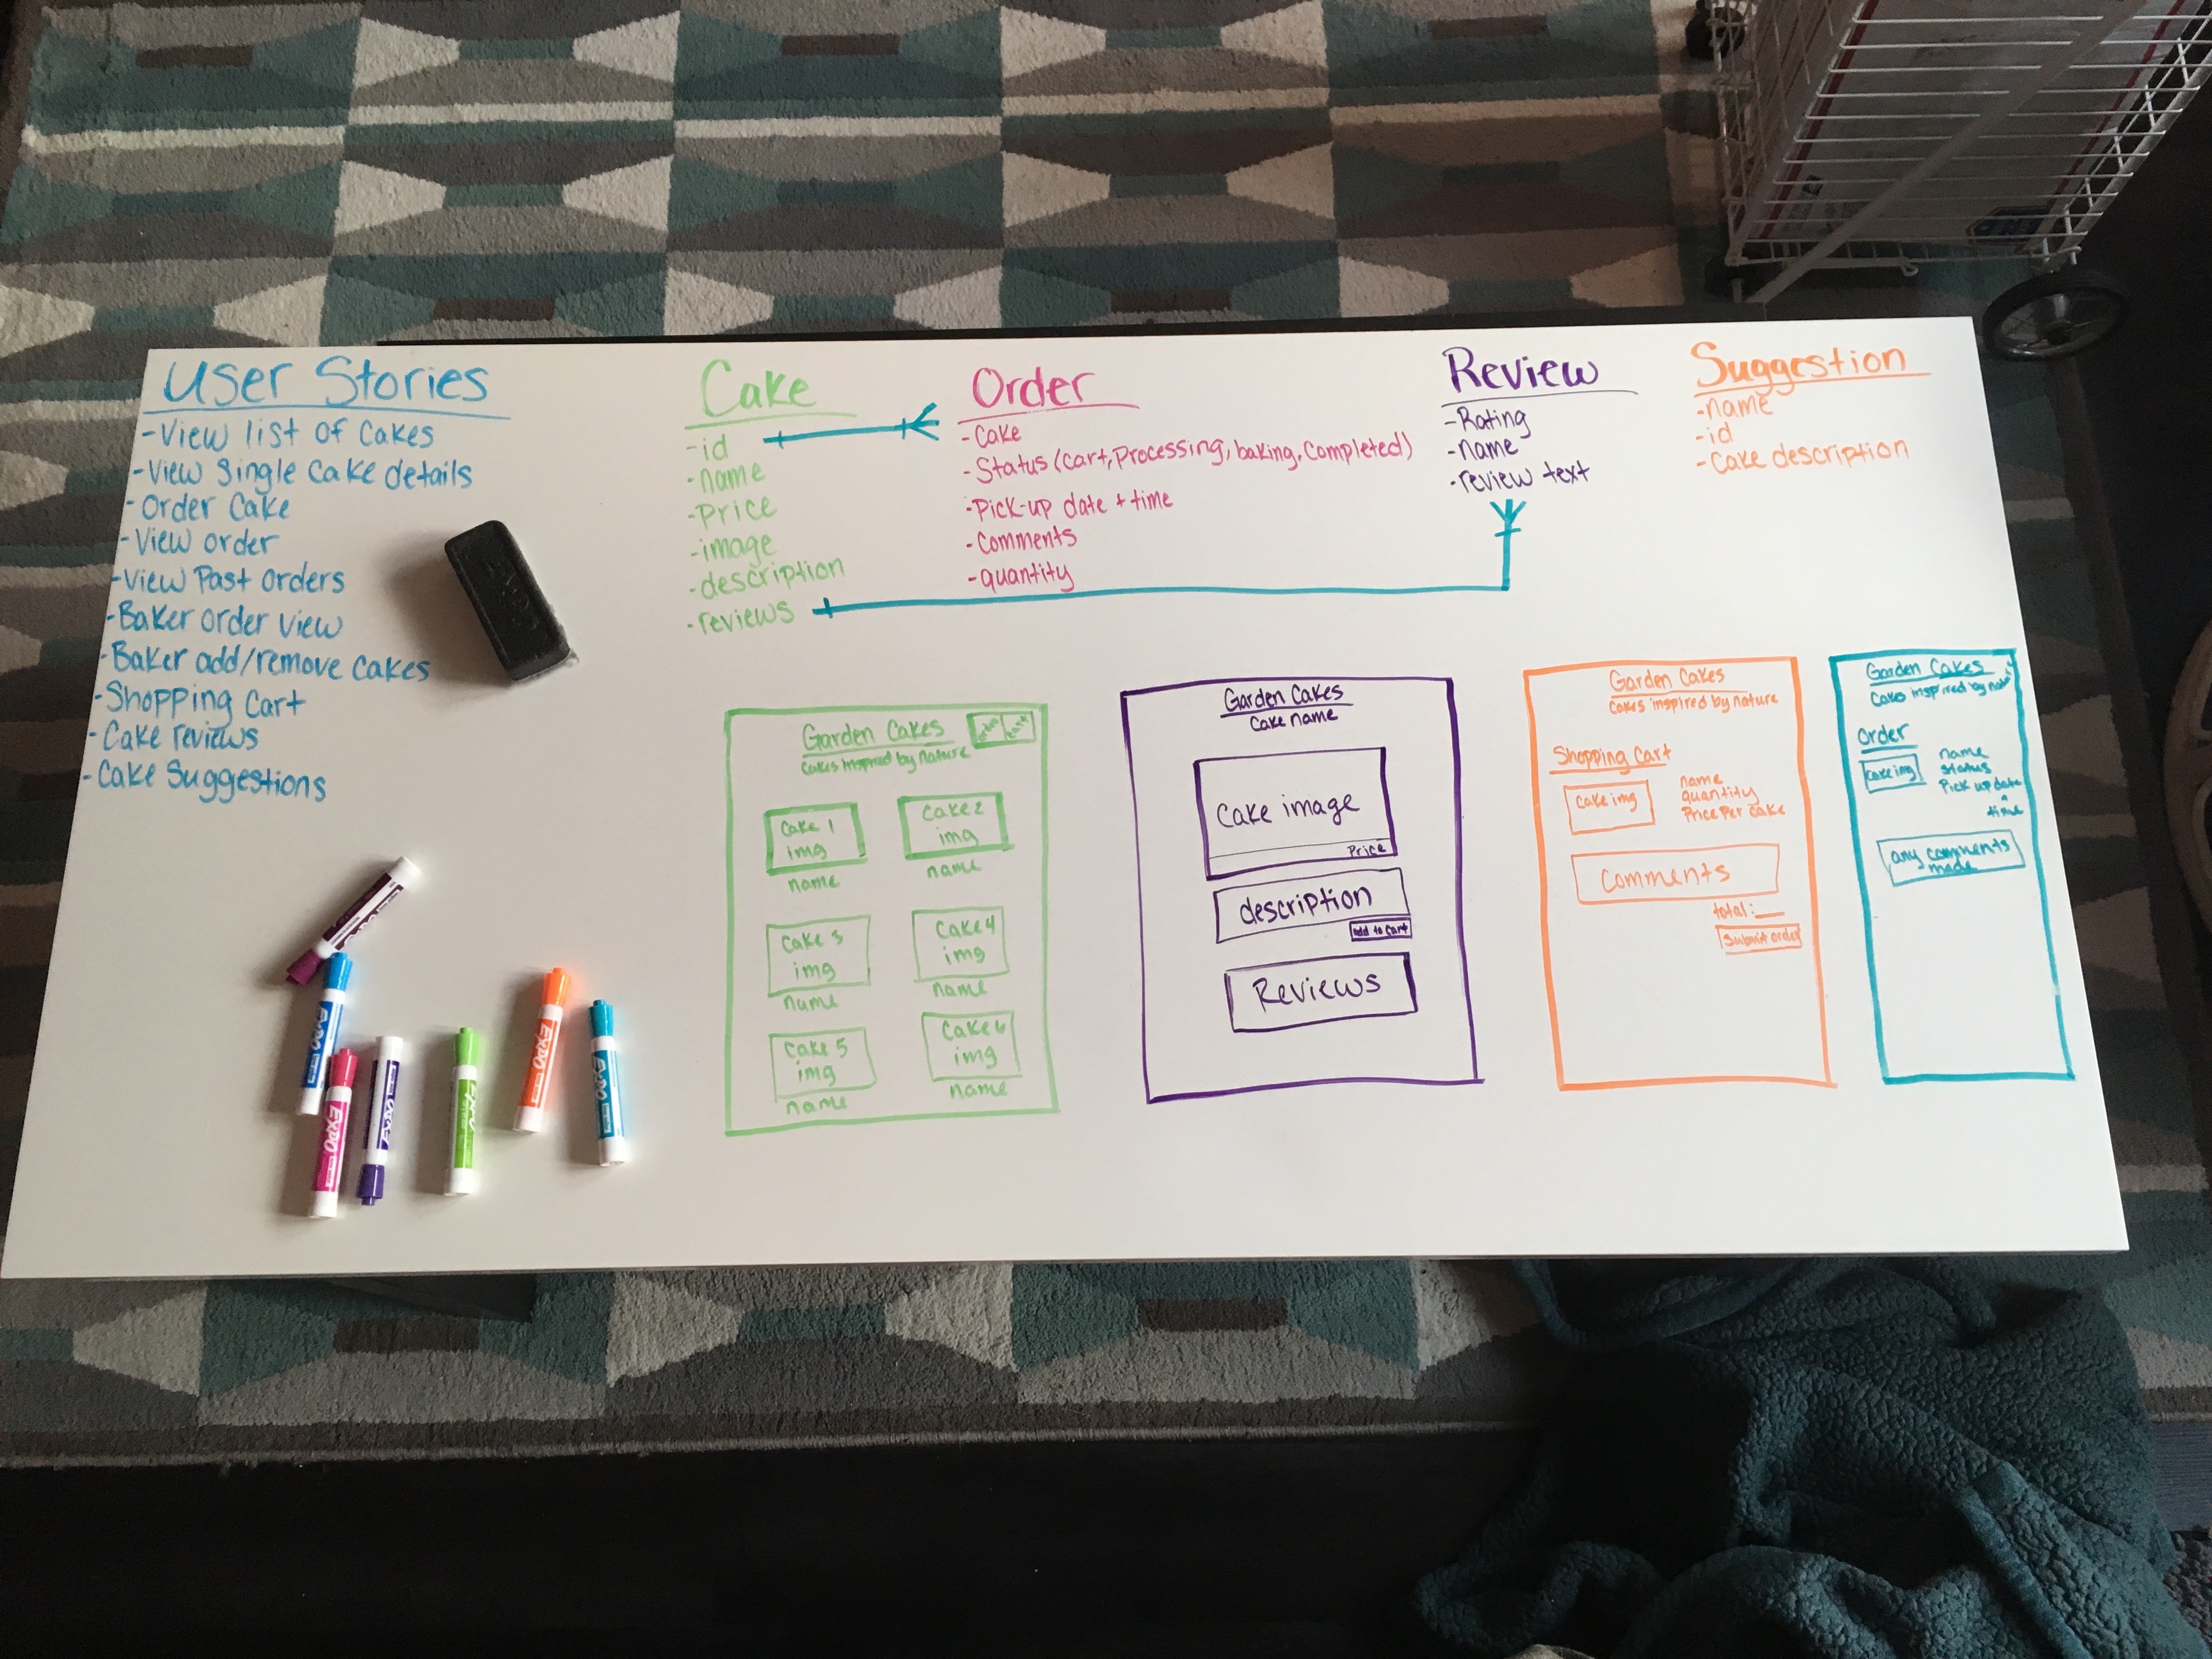 User Stories
-View list of Cakes
-View Single Cake details
-Order Cake
-View order
-View Past orders
-Baker order view
-Baker add/remove cakes
-Shopping Cart
-Cake reviews
-Cake Suggestions
Cake
-id
-name
-Price
-image
-description
-reviews
Order
-Cake
-Status (Cart, Processing, baking, Completed)
-Pick-up date + time
-Comments
-quantity
Review
-Rating
-name
-review text
Suggestion
-name
-id
-Cake description
Garden Cakes
Cakes inspired by Nature
Cake 1
img
name
Cake 2
img
name
Cake 3
img
name
Cake 4
img
name
Cake 5
img
name
Cake 6
img
name
Garden Cakes
Cake name
Cake image
Price
description
add to Cart
Reviews
Garden Cakes
Cakes inspired by Nature
Shopping Cart
Cake img
name
quantity
Price Per Cake
Comments
total:__
Submit order
Garden Cakes
inspired by
Order
Cake img
name
Status
Pick up date
+
time
any comments
made
EXPO
EXPO
EXPO
EXPO